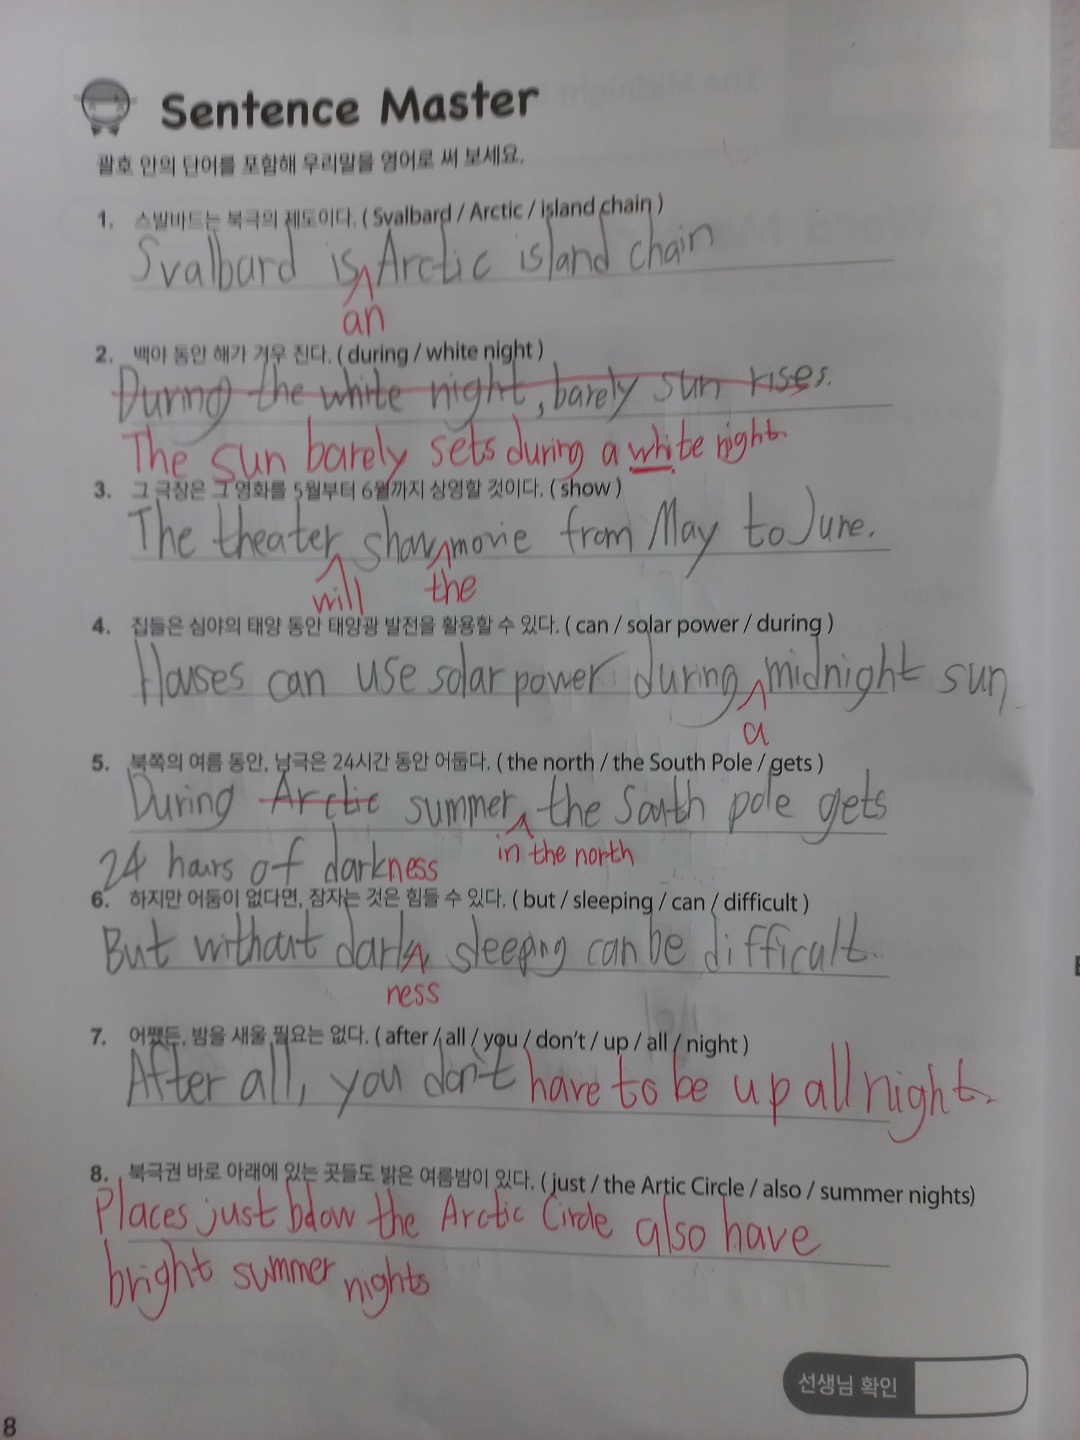 Sentence Master
괄호 안의 단어를 포함해 우리말을 영어로 써 보세요.
1. 스발바드는 북극의 제도이다. ( Svalbard / Arctic / island chain )
Svalbard is Arctic island chain
an
2. 백야 동안 해가 겨우 진다. ( during / white night )
During the white night, barely sun rises.
The sun barely sets during a white night.
3. 그 극장은 그 영화를 5월부터 6월까지 상영할 것이다. ( show )
The theater show movie from May to June.
will the
4. 집들은 심야의 태양 동안 태양광 발전을 활용할 수 있다. ( can / solar power / during )
Houses can use solar power during midnight sun.
a
5. 북쪽의 여름 동안, 남극은 24시간 동안 어둡다. ( the north / the South Pole / gets )
During Arctic summer, the South pole gets
in the north
24 hours of darkness
6. 하지만 어둠이 없다면, 잠자는 것은 힘들 수 있다. ( but / sleeping / can / difficult )
But without dark sleeping can be difficult.
ness
7. 어쨌든, 밤을 새울 필요는 없다. ( after / all / you / don't / up / all / night )
After all, you don't have to be up all night.
8. 북극권 바로 아래에 있는 곳들도 밝은 여름밤이 있다. ( just / the Artic Circle / also / summer nights)
Places just below the Arctic Circle also have
bright summer nights
선생님 확인
8